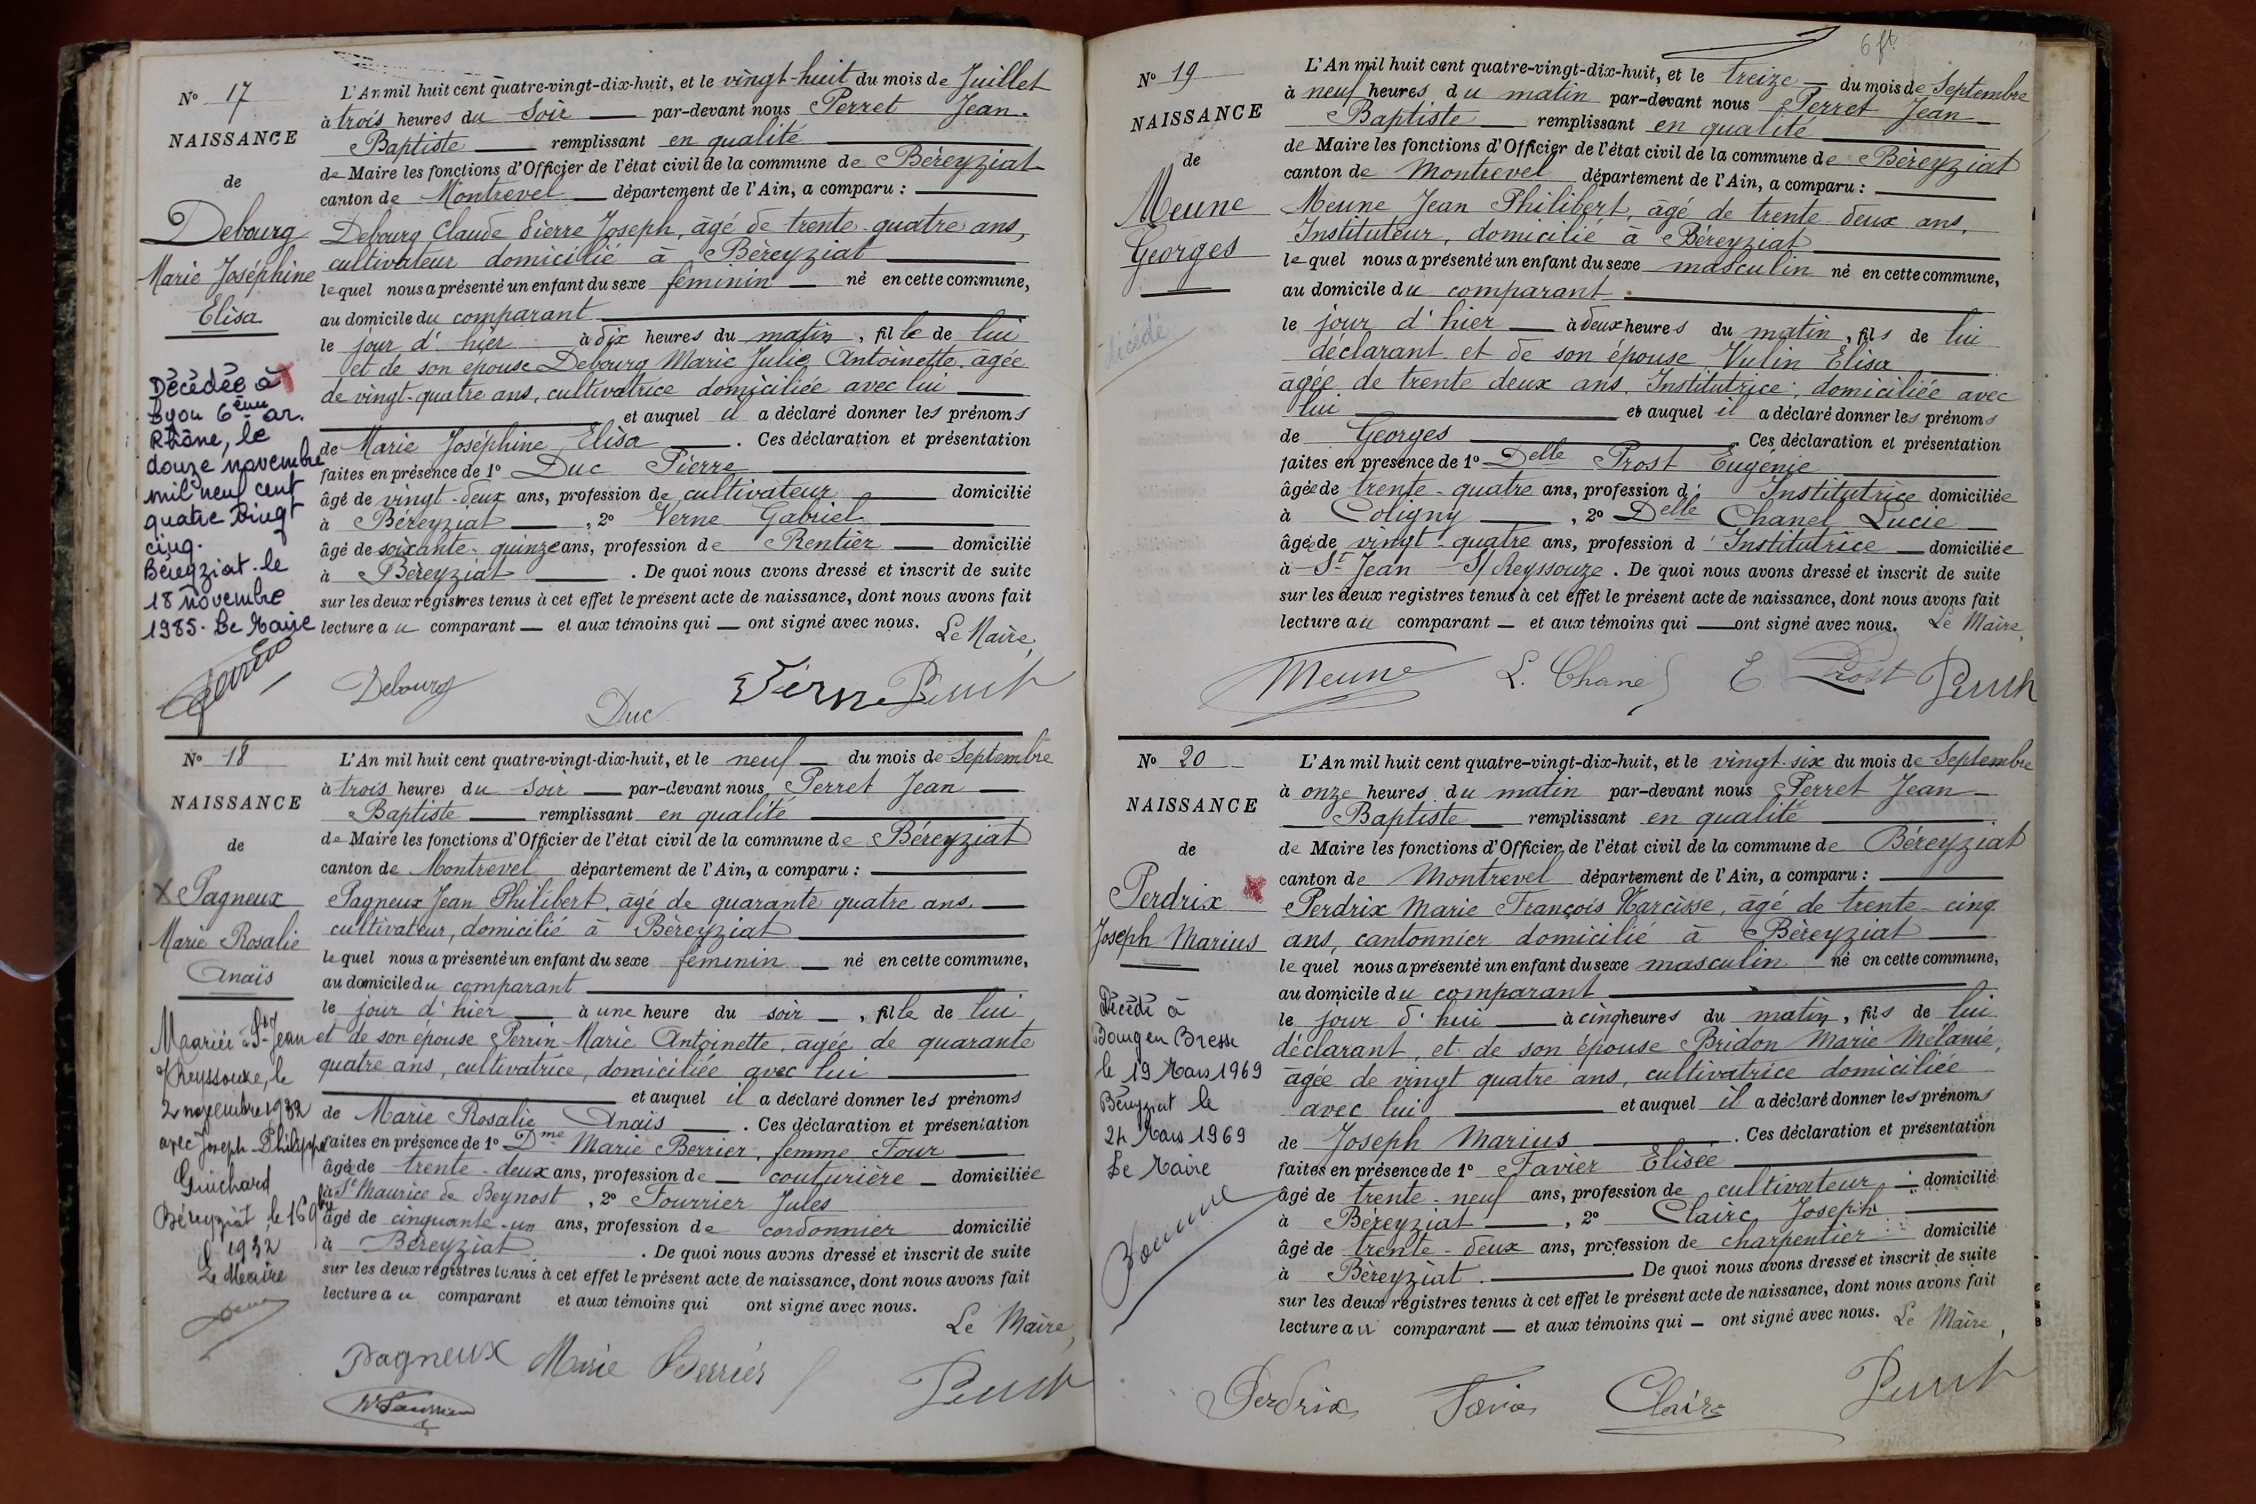 N° 17
NAISSANCE
de
Debourg
Marie Joséphine
Elisa
Décédée à
Lyon 6ème ar.
Rhône, le
douze novembre
mil neuf cent
quatre vingt
cinq.
Béreyziat le
18 novembre
1985. Le Maire
L'An mil huit cent quatre-vingt-dix-huit, et le vingt-huit du mois de Juillet
à trois heures du Soir par-devant nous Perret Jean
Baptiste remplissant en qualité
de Maire les fonctions d'Officier de l'état civil de la commune de Béreyziat
canton de Montrevel département de l'Ain, a comparu :
Debourg Claude Pierre Joseph, âgé de trente-quatre ans,
cultivateur domicilié à Béreyziat
lequel nous a présenté un enfant du sexe féminin né en cette commune,
au domicile du comparant
le jour d'hier à dix heures du matin, fille de lui
et de son épouse Debourg Marie Julie Antoinette âgée
de vingt-quatre ans, cultivatrice domiciliée avec lui
et auquel il a déclaré donner les prénoms
de Marie Joséphine Elisa. Ces déclaration et présentation
faites en présence de 1° Duc Pierre
âgé de vingt-deux ans, profession de cultivateur domicilié
à Béreyziat, 2° Verne Gabriel
âgé de soixante-quinze ans, profession de Rentier domicilié
à Béreyziat. De quoi nous avons dressé et inscrit de suite
sur les deux registres tenus à cet effet le présent acte de naissance, dont nous avons fait
lecture au comparant et aux témoins qui ont signé avec nous. Le Maire,
Debourg Duc Verne Perret
N° 18
NAISSANCE
de
X Pagneux
Marie Rosalie
Anaïs
Mariée à St Jean
s/Reyssouze, le
2 novembre 1932
avec Joseph Philippe
Guichard
Béreyziat, le 16 9bre
1932
Le Maire
L'An mil huit cent quatre-vingt-dix-huit, et le neuf du mois de Septembre
à trois heures du Soir par-devant nous Perret Jean
Baptiste remplissant en qualité
de Maire les fonctions d'Officier de l'état civil de la commune de Béreyziat
canton de Montrevel département de l'Ain, a comparu :
Pagneux Jean Philibert, âgé de quarante quatre ans,
cultivateur, domicilié à Béreyziat
lequel nous a présenté un enfant du sexe féminin né en cette commune,
au domicile du comparant
le jour d'hier à une heure du soir, fille de lui
et de son épouse Perrin Marie Antoinette, âgée de quarante
quatre ans, cultivatrice, domiciliée avec lui
et auquel il a déclaré donner les prénoms
de Marie Rosalie Anaïs. Ces déclaration et présentation
faites en présence de 1° Dme Marie Berrier, femme Four
âgée de trente-deux ans, profession de couturière domiciliée
à St Maurice de Beynost, 2° Fourrier Jules
âgé de cinquante-un ans, profession de cordonnier domicilié
à Béreyziat. De quoi nous avons dressé et inscrit de suite
sur les deux registres tenus à cet effet le présent acte de naissance, dont nous avons fait
lecture au comparant et aux témoins qui ont signé avec nous.
Le Maire,
Pagneux Marie Berrier Perret
6 ft
N° 19
NAISSANCE
de
Meune
Georges
décédé
L'An mil huit cent quatre-vingt-dix-huit, et le treize du mois de Septembre
à neuf heures du matin par-devant nous Perret Jean
Baptiste remplissant en qualité
de Maire les fonctions d'Officier de l'état civil de la commune de Béreyziat
canton de Montrevel département de l'Ain, a comparu :
Meune Jean Philibert, âgé de trente deux ans,
Instituteur, domicilié à Béreyziat
lequel nous a présenté un enfant du sexe masculin né en cette commune,
au domicile du comparant
le jour d'hier à deux heures du matin, fils de lui
déclarant et de son épouse Vulin Elisa
âgée de trente deux ans, Institutrice, domiciliée avec
lui et auquel il a déclaré donner les prénoms
de Georges. Ces déclaration et présentation
faites en présence de 1° Delle Prost Eugénie
âgée de trente-quatre ans, profession d'Institutrice domiciliée
à Coligny, 2° Delle Chanel Lucie
âgée de vingt-quatre ans, profession d'Institutrice domiciliée
à St Jean S/ Reyssouze. De quoi nous avons dressé et inscrit de suite
sur les deux registres tenus à cet effet le présent acte de naissance, dont nous avons fait
lecture au comparant et aux témoins qui ont signé avec nous. Le Maire,
Meune L. Chanel E Prost Perret
N° 20
NAISSANCE
de
Perdrix
Joseph Marius
Décédé à
Bourg en Bresse
le 19 Mars 1969
Béreyziat le
24 Mars 1969
Le Maire
L'An mil huit cent quatre-vingt-dix-huit, et le vingt-six du mois de Septembre
à onze heures du matin par-devant nous Perret Jean
Baptiste remplissant en qualité
de Maire les fonctions d'Officier de l'état civil de la commune de Béreyziat
canton de Montrevel département de l'Ain, a comparu :
Perdrix Marie François Narcisse, âgé de trente-cinq
ans, cantonnier domicilié à Béreyziat
lequel nous a présenté un enfant du sexe masculin né en cette commune,
au domicile du comparant
le jour d'hui à cinq heures du matin, fils de lui
déclarant, et de son épouse Bridon Marie Mélanie,
âgée de vingt quatre ans, cultivatrice domiciliée
avec lui et auquel il a déclaré donner les prénoms
de Joseph Marius. Ces déclaration et présentation
faites en présence de 1° Favier Elisée
âgé de trente-neuf ans, profession de cultivateur domicilié
à Béreyziat, 2° Claire Joseph
âgé de trente-deux ans, profession de charpentier domicilié
à Béreyziat. De quoi nous avons dressé et inscrit de suite
sur les deux registres tenus à cet effet le présent acte de naissance, dont nous avons fait
lecture au comparant et aux témoins qui ont signé avec nous. Le Maire,
Perdrix Favier Claire Perret